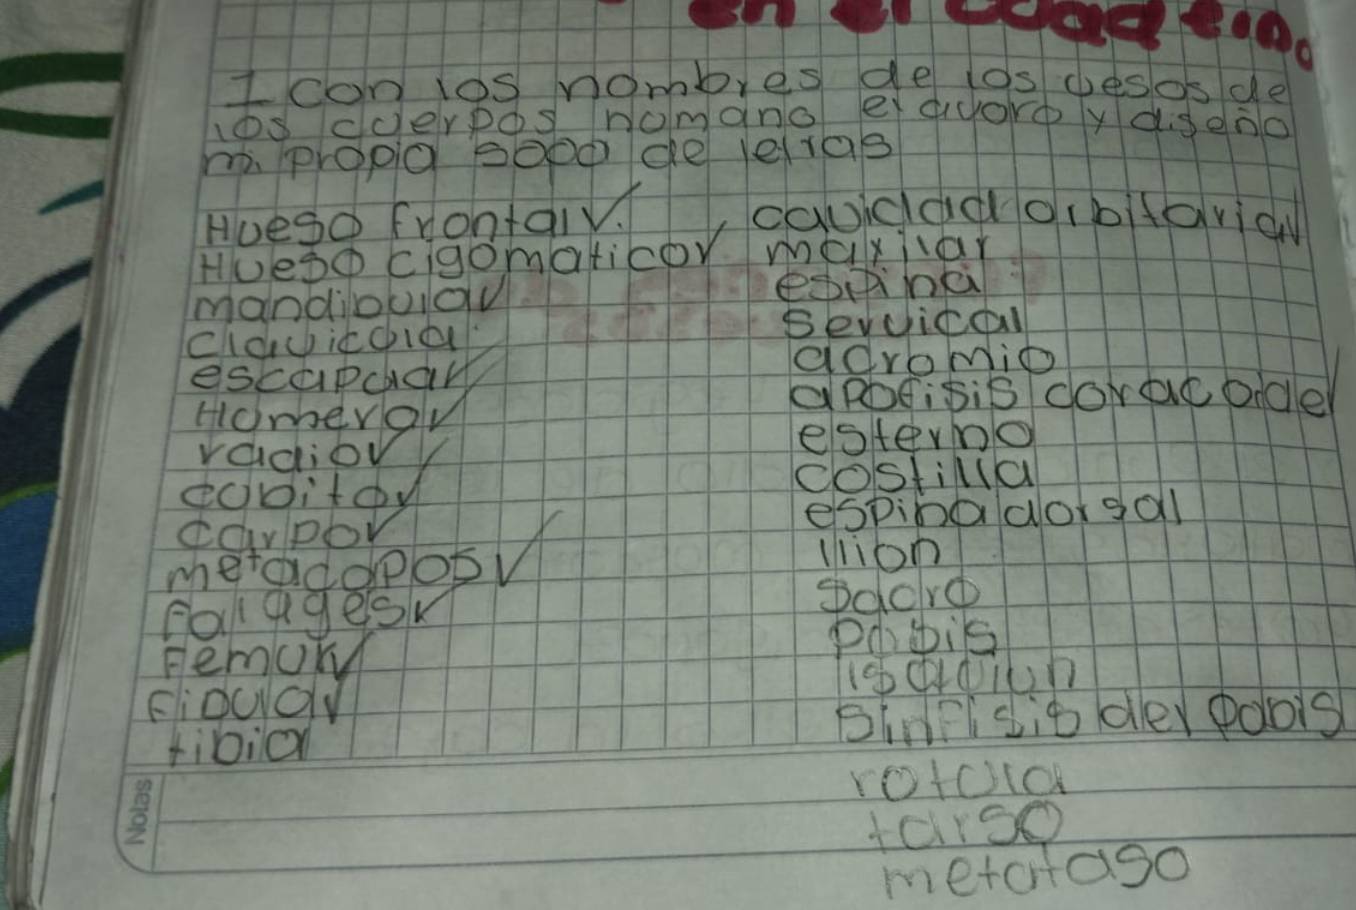 en el cuad
1 con los nombres de los uesos de
los cuerpos humano elavoro y diseño
mi propia sopa de letras
Hueso frontal ✓.
Hueso cigomatico ✓
mandibula ✓
clavicula
escapular ✓
Humero ✓
radio ✓
cubito ✓
carpo ✓
metacapos ✓
Falages ✓
Femur ✓
Fibula ✓
tibia
cavidad orbitaria ✓
maxilar
espina
servical
acromio
apofisis coracoide
esterno
costilla
espina dorsal
ilion
sacro
pubis
sinfisis del pubis
rotula
tarso
metataso
Notas